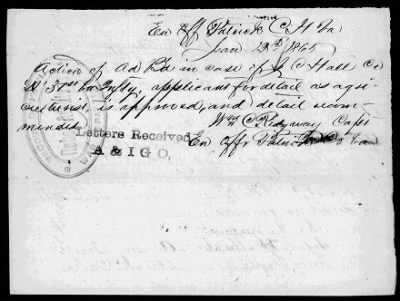 En Off Patrick C H Va
Jan 13th 1865
Action of Ad Bd in case of J C Hall Co
D 31st Va Infty, applicant for detail as agri-
culturist is approved, and detail recom-
mended.
Wm C Ridgway Capt
En offr Patrick Co Va
Letters Received
A & I G O,